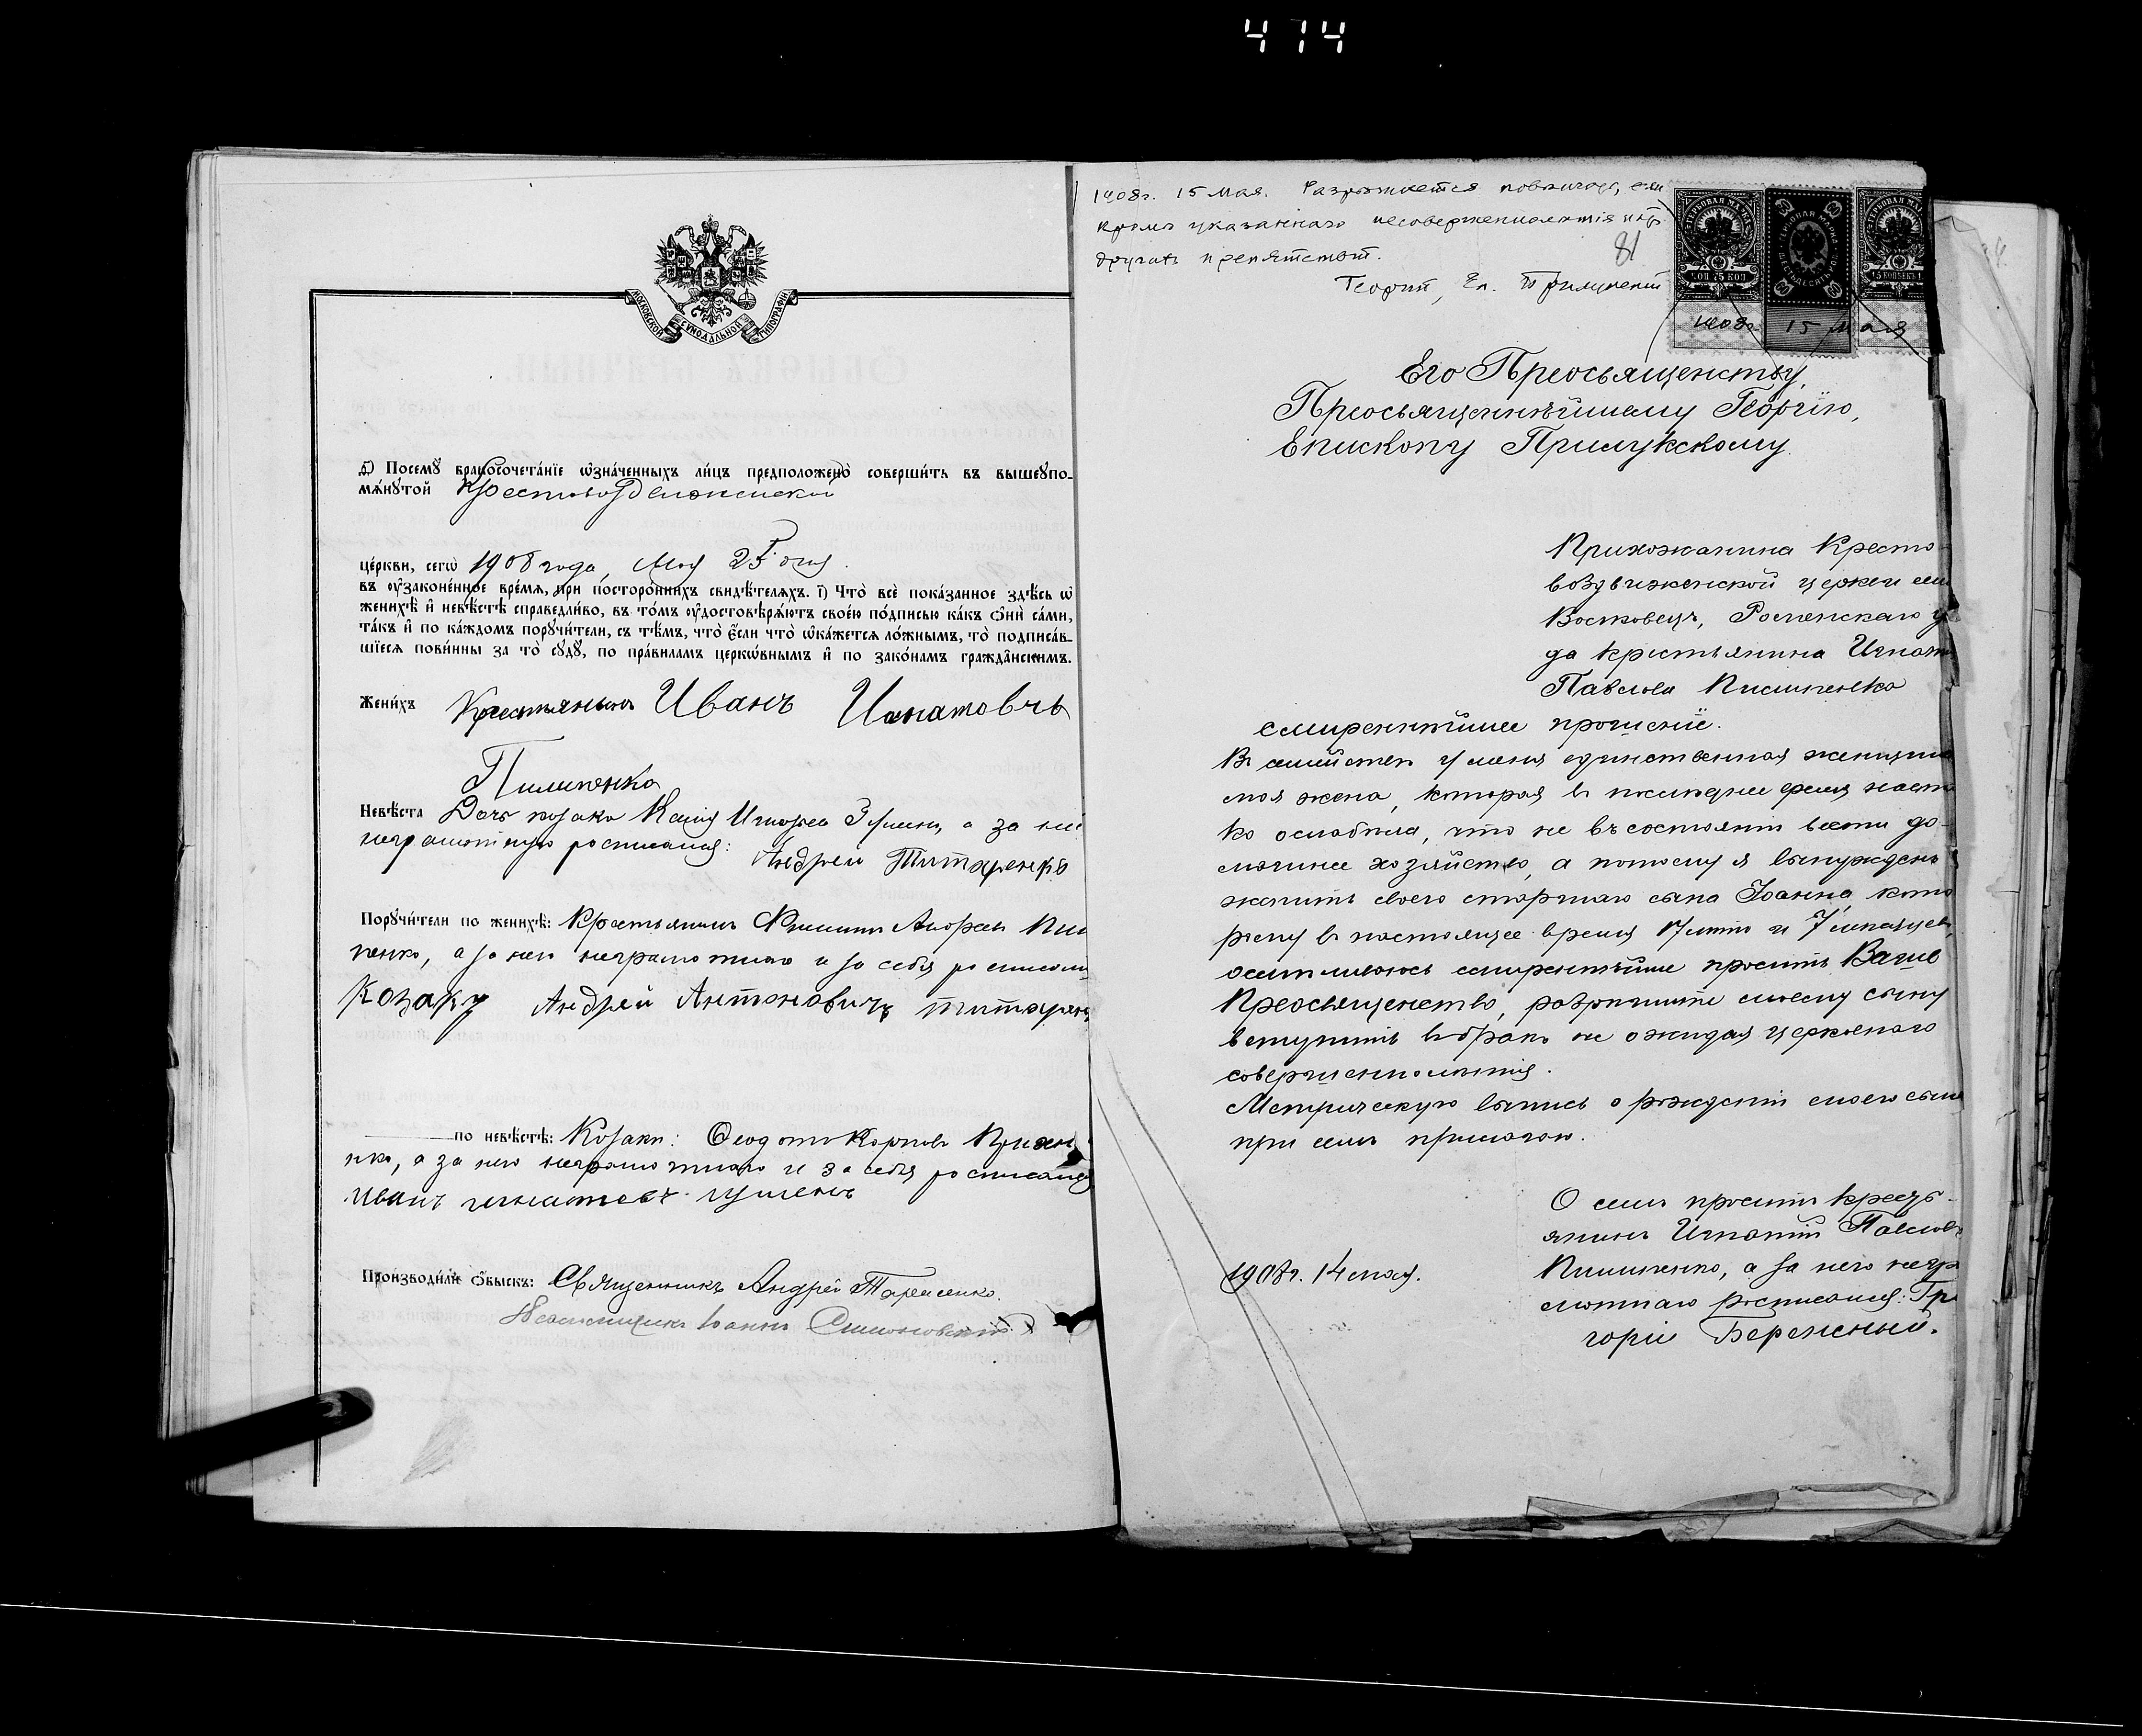 414
МОСКОВСКОЙ СѴНОДАЛЬНОЙ ТИПОГРАФІИ
Посемꙋ̀ бракосочета́нїе ѡ҆зна́ченныхъ ли́цъ предположено̀ соверши́ть въ вышеꙋпо-
мѧ́нꙋтой Крестовоздвиженской
це́ркви, сегѡ̀ 1908 года, Мая 25 дня.
въ ᲂу҆законе́нное вре́мѧ, при посторо́ннихъ свидѣ́телѧхъ. і҃) Что̀ всѐ пока́занное здѣ́сь ѡ҆
женихѣ̀ и҆ невѣ́стѣ справедли́во, въ то́мъ ᲂу҆достовѣрѧ́ютъ своє́ю по́дписью ка́къ ѻ҆нѝ са́ми,
та́къ и҆ по ка́ждомъ порꙋчи́тели, съ тѣ́мъ, что̀ є҆́сли что̀ ѡ҆ка́жетсѧ ло́жнымъ, то̀ подписа́в-
шїесѧ пови́нны за то̀ сꙋдꙋ̀, по пра́виламъ церко́внымъ и҆ по зако́намъ гражда́нскимъ.
Жени́хъ Крестьянинъ Иванъ Игнатовчъ
Пилипенко
Невѣ́ста Дочь козака а за неё
неграмотную росписался: Андрей Титаренко
Порꙋчи́тели по женихѣ̀: Крестьянинъ Филиппъ Андреевъ Пили
пенко, а за него неграмотнаго и за себя росписался
Козакъ Андрей Антоновичъ титарен
по невѣ́стѣ: Козаки: Ѳеодотъ Карповъ
нко, а за него неграмотнаго и за себя росписался
Иванъ игнатовъ
Производи́ли ѻ҆́быскъ: Священникъ Андрей Тарасенко.
Псаломщикъ Іоаннъ
1908г. 15 мая. Разрѣшается повѣнчать, если
кромѣ указаннаго несовершеннолѣтія нѣтъ
другихъ препятствій.
81
Георгій, Еп. Прилукскій
75 КОП
ШЕСТЬДЕСЯТЪ КОП
15 КОПѢЕКЪ
1908г. 15 мая
Его Преосвященству,
Преосвященнѣйшему Георгію,
Епископу Прилукскому
Прихожанина Кресто-
воздвиженской церкви
Роменскаго у
да крестьянина Игнат
Павлова Пилипенко
смиреннѣйшее прошеніе.
Въ семействѣ у меня единственная женщина
моя жена, которая въ послѣднее время наст
ко ослабѣла, что не въ состояніи вести до-
машнее хозяйство, а потому я вынужденъ
женить своего старшаго сына Іоанна, кото
рому въ настоящее время 17 лѣтъ и 7 мѣсяцевъ,
осмѣливаюсь смиреннѣйше просить Ваше
Преосвященство, разрѣшить моему сыну
вступить въ бракъ не ожидая церковнаго
совершеннолѣтія.
Метрическую выпись о рожденіи моего сына
при семъ прилагаю.
О семъ проситъ кресть-
янинъ Игнатій Павловъ
Пилипенко, а за него негра
мотнаго росписался: Гри
горій Бережный.
1908г. 14 мая.